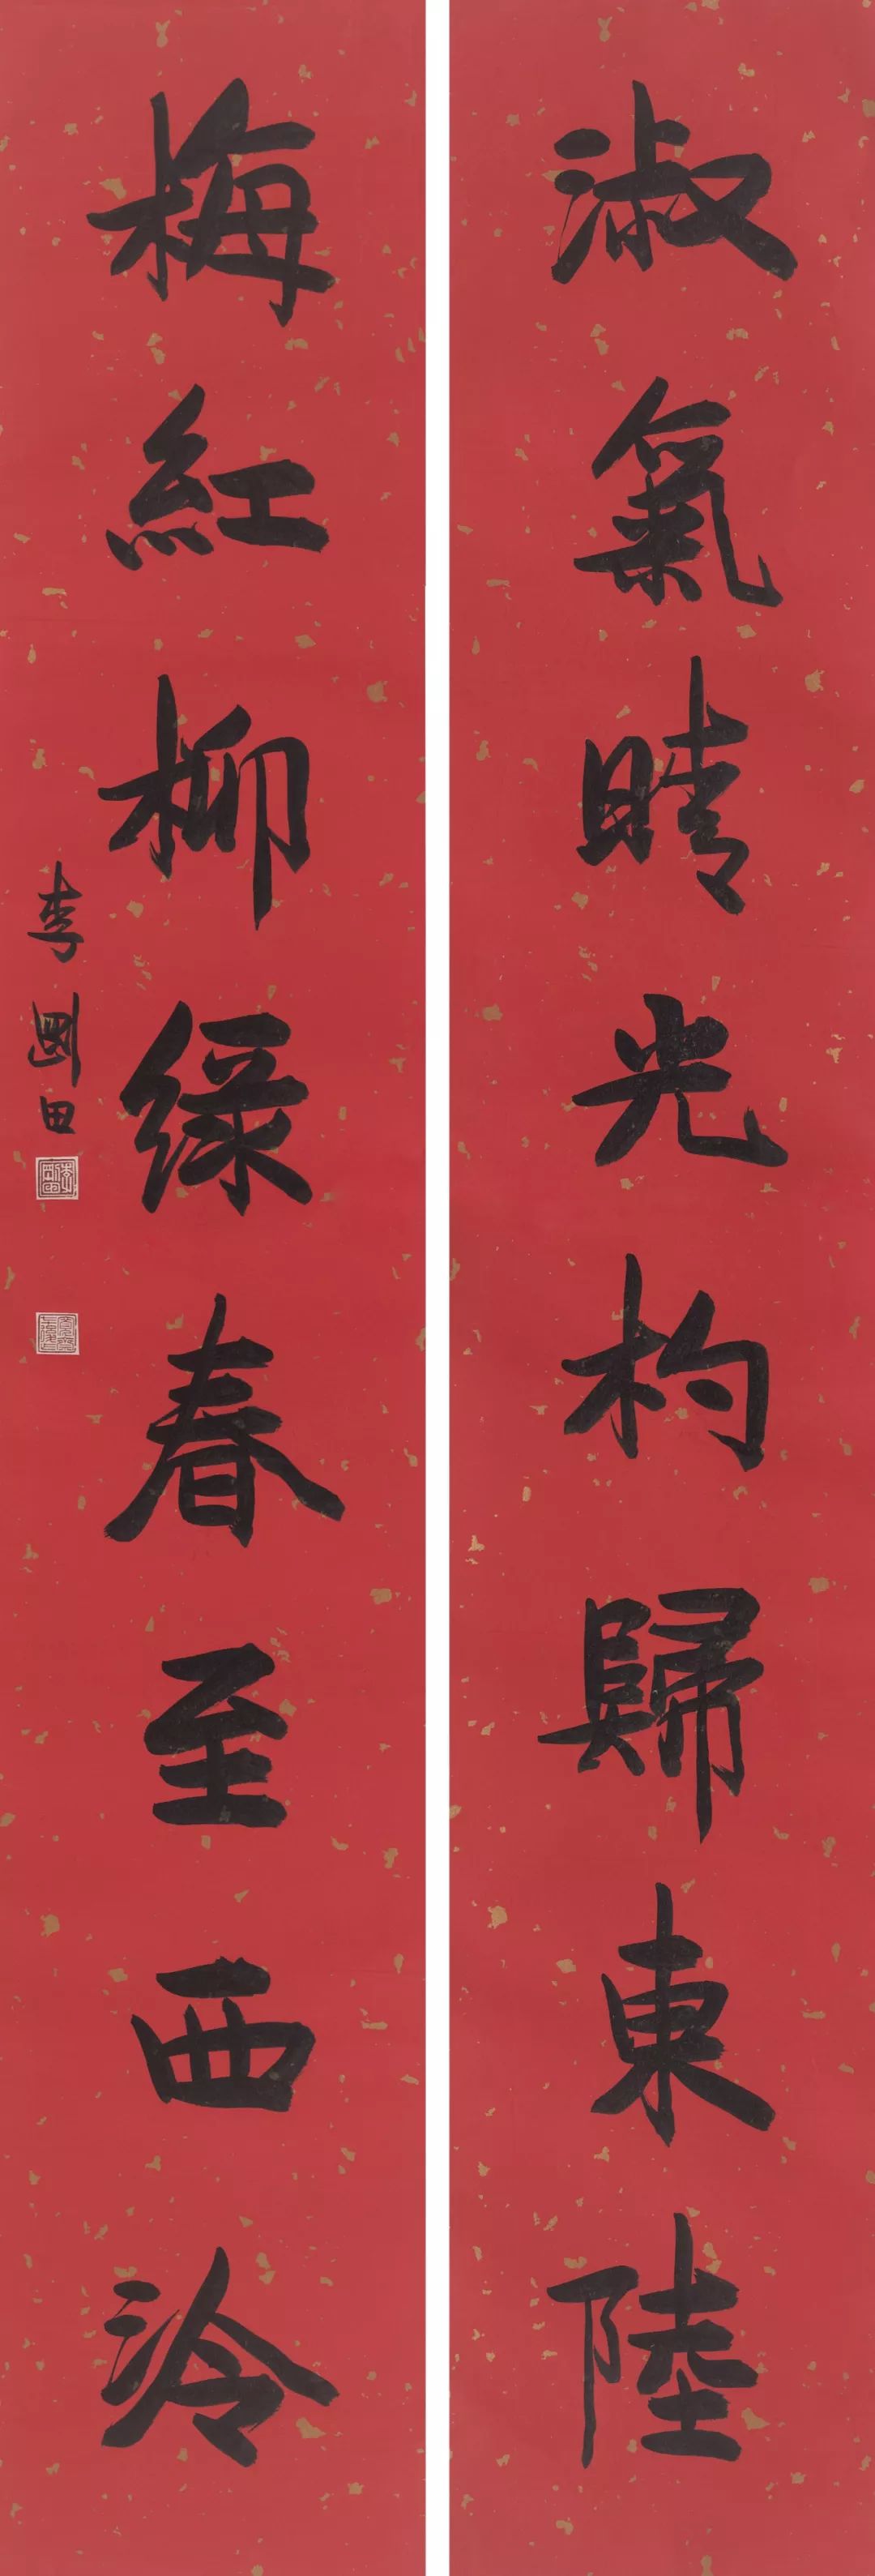 淑氣晴光杓歸東陸
梅紅柳綠春至西泠
李剛田